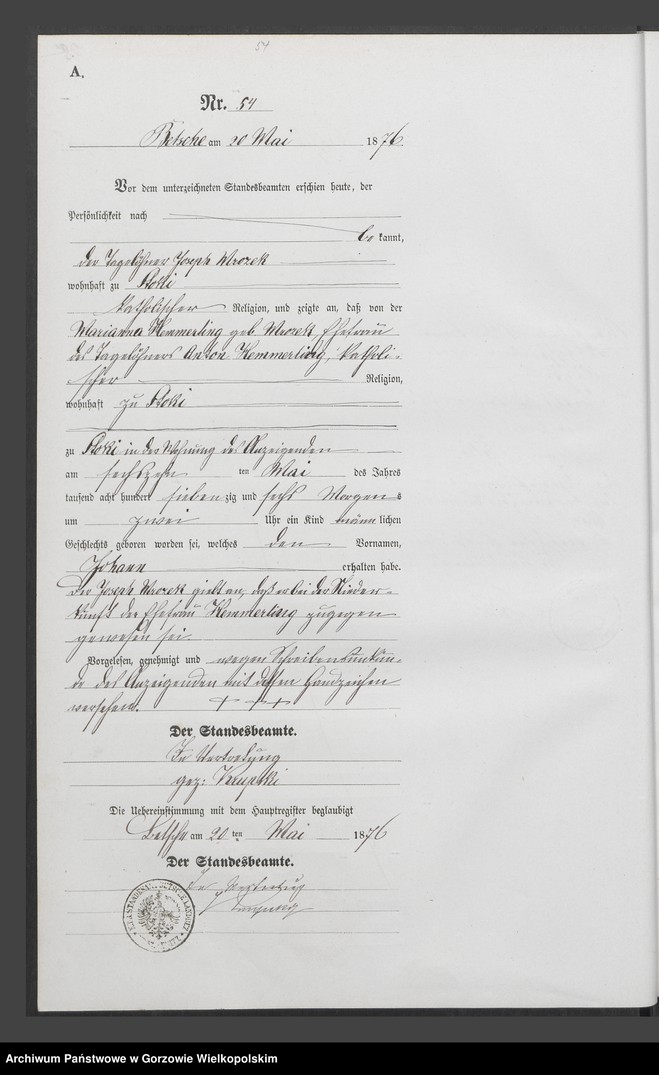 54
A.
Nr. 54
Betsche am 20 Mai 1876
Vor dem unterzeichneten Standesbeamten erschien heute, der
Persönlichkeit nach
bekannt,
der Tagelöhner Joseph Wrozek
wohnhaft zu Stoki
katholischer Religion, und zeigte an, daß von der
Marianna Hemmerling geb. Wrozek, Ehefrau
des Tagelöhners Anton Hemmerling, katholi-
scher Religion,
wohnhaft zu Stoki
zu Stoki in der Wohnung des Anzeigenden
am sechszehn ten Mai des Jahres
tausend acht hundert siebenzig und sechs Morgens
um zwei Uhr ein Kind männlichen
Geschlechts geboren worden sei, welches den Vornamen,
Johann erhalten habe.
Der Joseph Wrozek giebt an, daß er bei der Nieder-
kunft der Ehefrau Hemmerling zugegen
gewesen sei.
Vorgelesen, genehmigt und wegen Schreibensunkun-
de des Anzeigenden mit dessen Handzeichen
versehen. + + +
Der Standesbeamte.
In Vertretung
gez:
Die Uebereinstimmung mit dem Hauptregister beglaubigt
Betsche am 20 ten Mai 1876
Der Standesbeamte.
In Vertretung
Archiwum Państwowe w Gorzowie Wielkopolskim